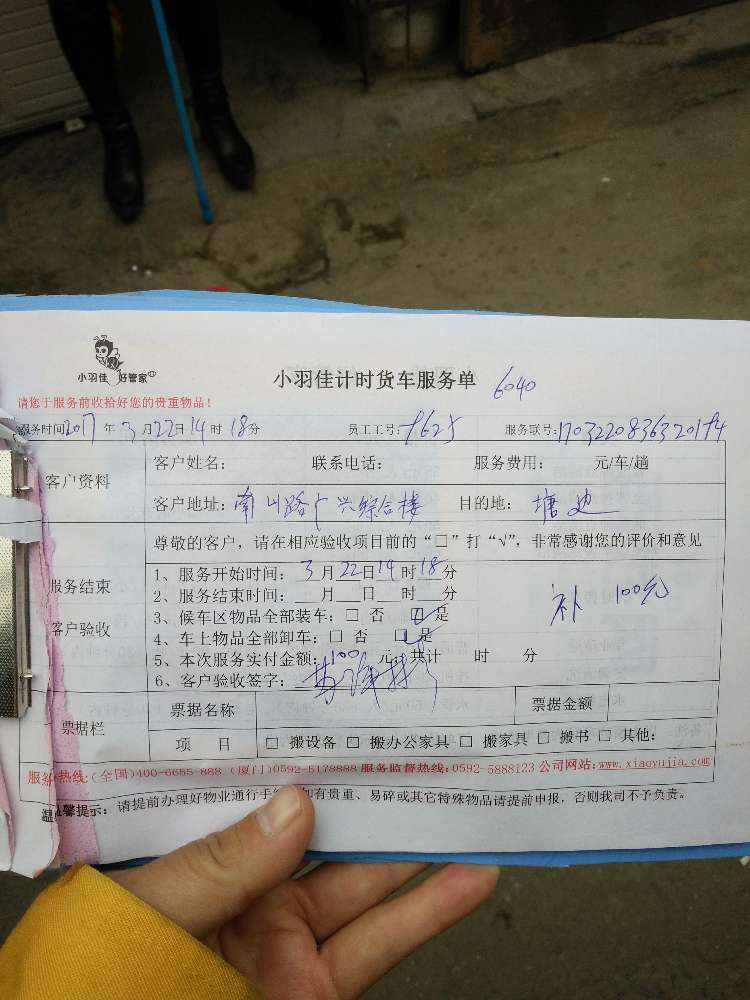 小羽佳 好管家
小羽佳计时货车服务单 6040
请您于服务前收拾好您的贵重物品！
服务时间2017年3月22日14时18分 员工工号: 服务联号:
客户资料
客户姓名： 联系电话： 服务费用： 元/车/趟
客户地址：南山路广兴综合楼 目的地：塘边
服务结束
客户验收
尊敬的客户，请在相应验收项目前的“□”打“√”，非常感谢您的评价和意见
1、服务开始时间：3月22日14时18分
2、服务结束时间：__月__日__时__分
补 100元
3、候车区物品全部装车：□ 否 □是
4、车上物品全部卸车：□ 否 □是
5、本次服务实付金额：100元，共计 时 分
6、客户验收签字：
票据栏
票据名称 票据金额
项 目 □ 搬设备 □ 搬办公家具 □ 搬家具 □ 搬书 □ 其他：
服务热线:(全国)400-6655-888 (厦门)0592-5178888 服务监督热线:0592-5888123 公司网站:www.xiaoyujia.com
温馨提示：请提前办理好物业通行手续 如有贵重、易碎或其它特殊物品请提前申报，否则我司不予负责。